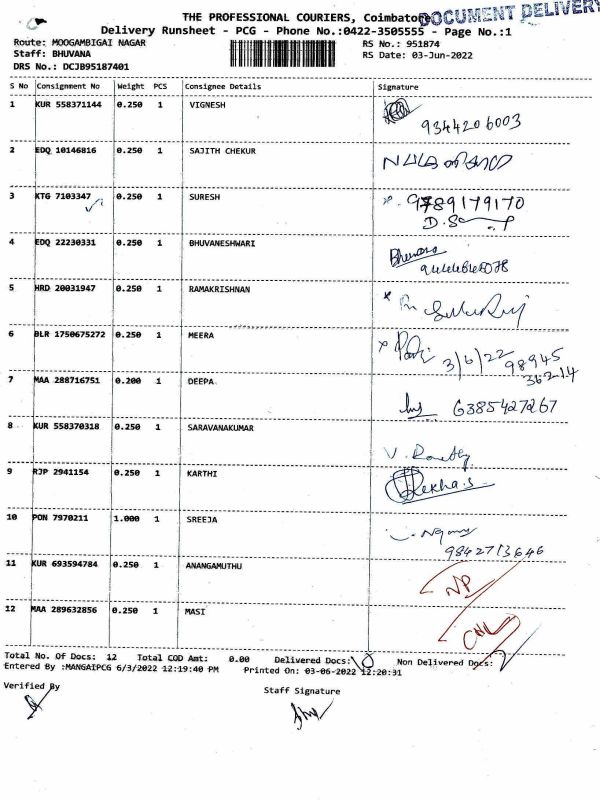 THE PROFESSIONAL COURIERS, Coimbatore
DOCUMENT DELIVERY
Delivery Runsheet - PCG - Phone No.:0422-3505555 - Page No.:1
Route: MOOGAMBIGAI NAGAR RS No.: 951874
Staff: BHUVANA RS Date: 03-Jun-2022
DRS No.: DCJB95187401
S No Consignment No Weight PCS Consignee Details Signature
1 KUR 558371144 0.250 1 VIGNESH
9344206003
2 EDQ 10146816 0.250 1 SAJITH CHEKUR
3 KTG 7103347 0.250 1 SURESH 9789179170
4 EDQ 22230331 0.250 1 BHUVANESHWARI
5 HRD 20031947 0.250 1 RAMAKRISHNAN
6 BLR 1750675272 0.250 1 MEERA
3/6/22 98945
36214
7 MAA 288716751 0.200 1 DEEPA
6385427267
8 KUR 558370318 0.250 1 SARAVANAKUMAR
9 RJP 2941154 0.250 1 KARTHI
10 PON 7970211 1.000 1 SREEJA
9842713646
11 KUR 693594784 0.250 1 ANANGAMUTHU
NP
12 MAA 289632856 0.250 1 MASI
Total No. Of Docs: 12 Total COD Amt: 0.00 Delivered Docs: 10 Non Delivered Docs:
Entered By :MANGAIPCG 6/3/2022 12:19:40 PM Printed On: 03-06-2022 12:20:31
Verified By Staff Signature